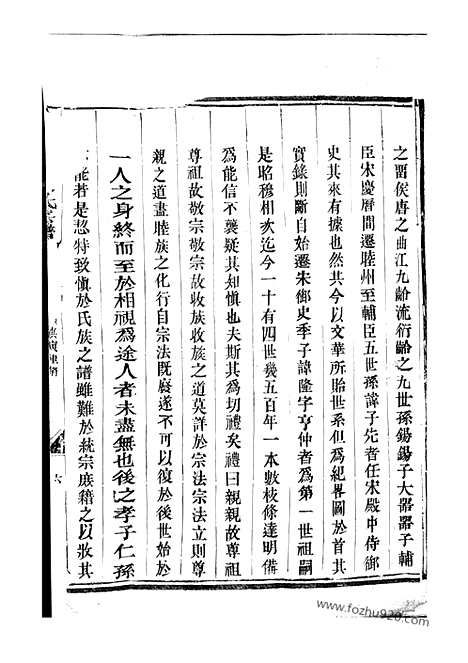 之畱侯唐之曲江九齡流衍齡之九世孫錫錫子大器器子輔
臣宋慶曆間遷睦州至輔臣五世孫諱子先者任宋殿中侍御
史其來有據也然其今以文華所貽世系但爲紀畧圖於首其
實錄則斷自始遷朱御史季子諱隆字亨仲者爲第一世祖嗣
是昭穆相次迄今一十有四世幾五百年一本數枝條達明備
爲能信不襲疑其知愼也夫斯其爲切禮矣禮曰親親故尊祖
尊祖故敬宗敬宗故收族收族之道莫詳於宗法宗法立則尊
親之道盡睦族之化行自宗法旣廢遂不可以復於後世始於
一人之身終而至於相視爲途人者未盡無也後之孝子仁孫
能若是惄特致愼於氏族之譜雖難於統宗庶籍之以收其
六
www.fozhu920.com